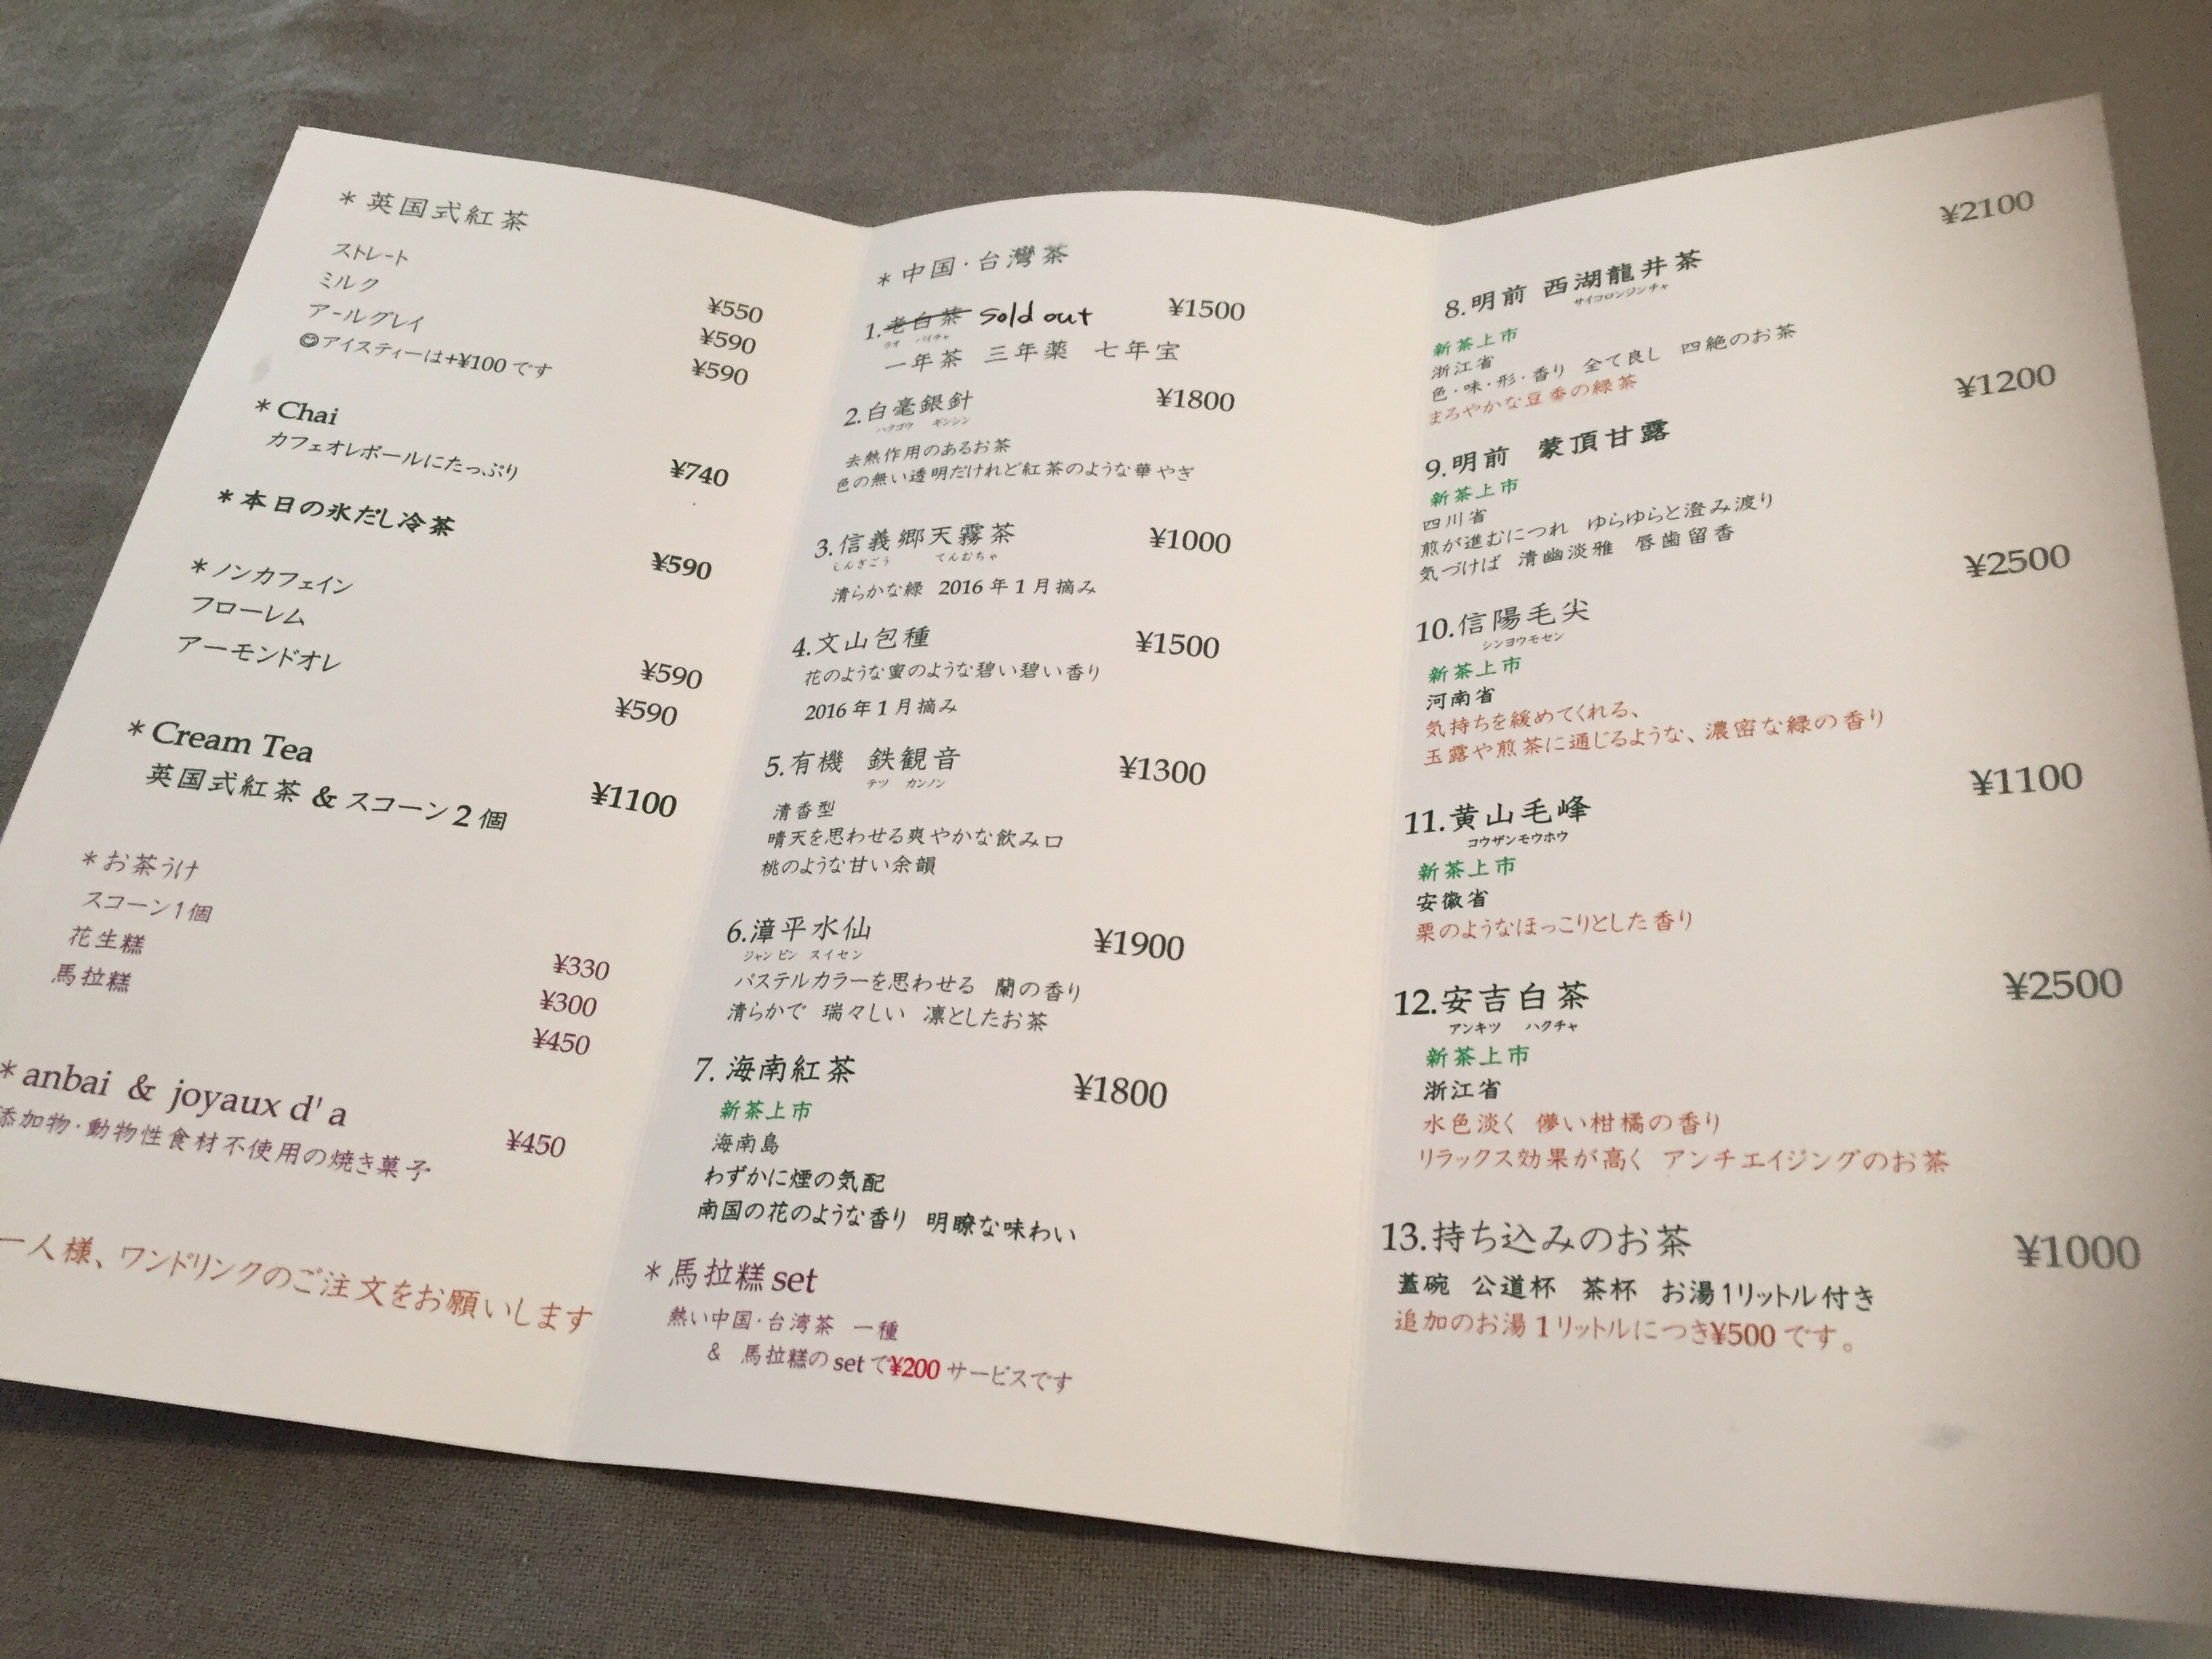 *英国式紅茶
ストレート ¥550
ミルク ¥590
アールグレイ ¥590
アイスティーは+¥100です
*Chai
カフェオレボールにたっぷり ¥740
*本日の氷だし冷茶
¥590
*ノンカフェイン
フローレム ¥590
アーモンドオレ ¥590
*Cream Tea
英国式紅茶 & スコーン2個 ¥1100
*お茶うけ
スコーン1個 ¥330
花生糕 ¥300
馬拉糕 ¥450
*anbai & joyaux d'a
添加物·動物性食材不使用の焼き菓子 ¥450
一人様、ワンドリンクのご注文をお願いします
*中国·台灣茶
1.老白茶 Sold out ¥1500
ラオ パイチャ
一年茶 三年薬 七年宝
2.白毫銀針 ¥1800
ハクゴウ ギンシン
去熱作用のあるお茶
色の無い透明だけれど紅茶のような華やぎ
3.信義郷天霧茶 ¥1000
しんぎごう てんむちゃ
清らかな緑 2016年1月摘み
4.文山包種 ¥1500
花のような蜜のような碧い碧い香り
2016年1月摘み
5.有機 鉄観音 ¥1300
テツ カンノン
清香型
晴天を思わせる爽やかな飲み口
桃のような甘い余韻
6.漳平水仙 ¥1900
ジャンピン スイセン
パステルカラーを思わせる 蘭の香り
清らかで 瑞々しい 凛としたお茶
7. 海南紅茶 ¥1800
新茶上市
海南島
わずかに煙の気配
南国の花のような香り 明瞭な味わい
*馬拉糕 set
熱い中国·台湾茶 一種
& 馬拉糕の set で¥200 サービスです
8.明前 西湖龍井茶 ¥2100
サイコロンジンチャ
新茶上市
浙江省
色·味·形·香り 全て良し 四絶のお茶
まろやかな豆香の緑茶
9.明前 蒙頂甘露 ¥1200
新茶上市
四川省
煎が進むにつれ ゆらゆらと澄み渡り
気づけば 清幽淡雅 唇歯留香
10.信陽毛尖 ¥2500
シンヨウモセン
新茶上市
河南省
気持ちを緩めてくれる、
玉露や煎茶に通じるような、濃密な緑の香り
11.黄山毛峰 ¥1100
コウザンモウホウ
新茶上市
安徽省
栗のようなほっこりとした香り
12.安吉白茶 ¥2500
アンキツ ハクチャ
新茶上市
浙江省
水色淡く 儚い柑橘の香り
リラックス効果が高く アンチエイジングのお茶
13.持ち込みのお茶 ¥1000
蓋碗 公道杯 茶杯 お湯1リットル付き
追加のお湯1リットルにつき¥500です。